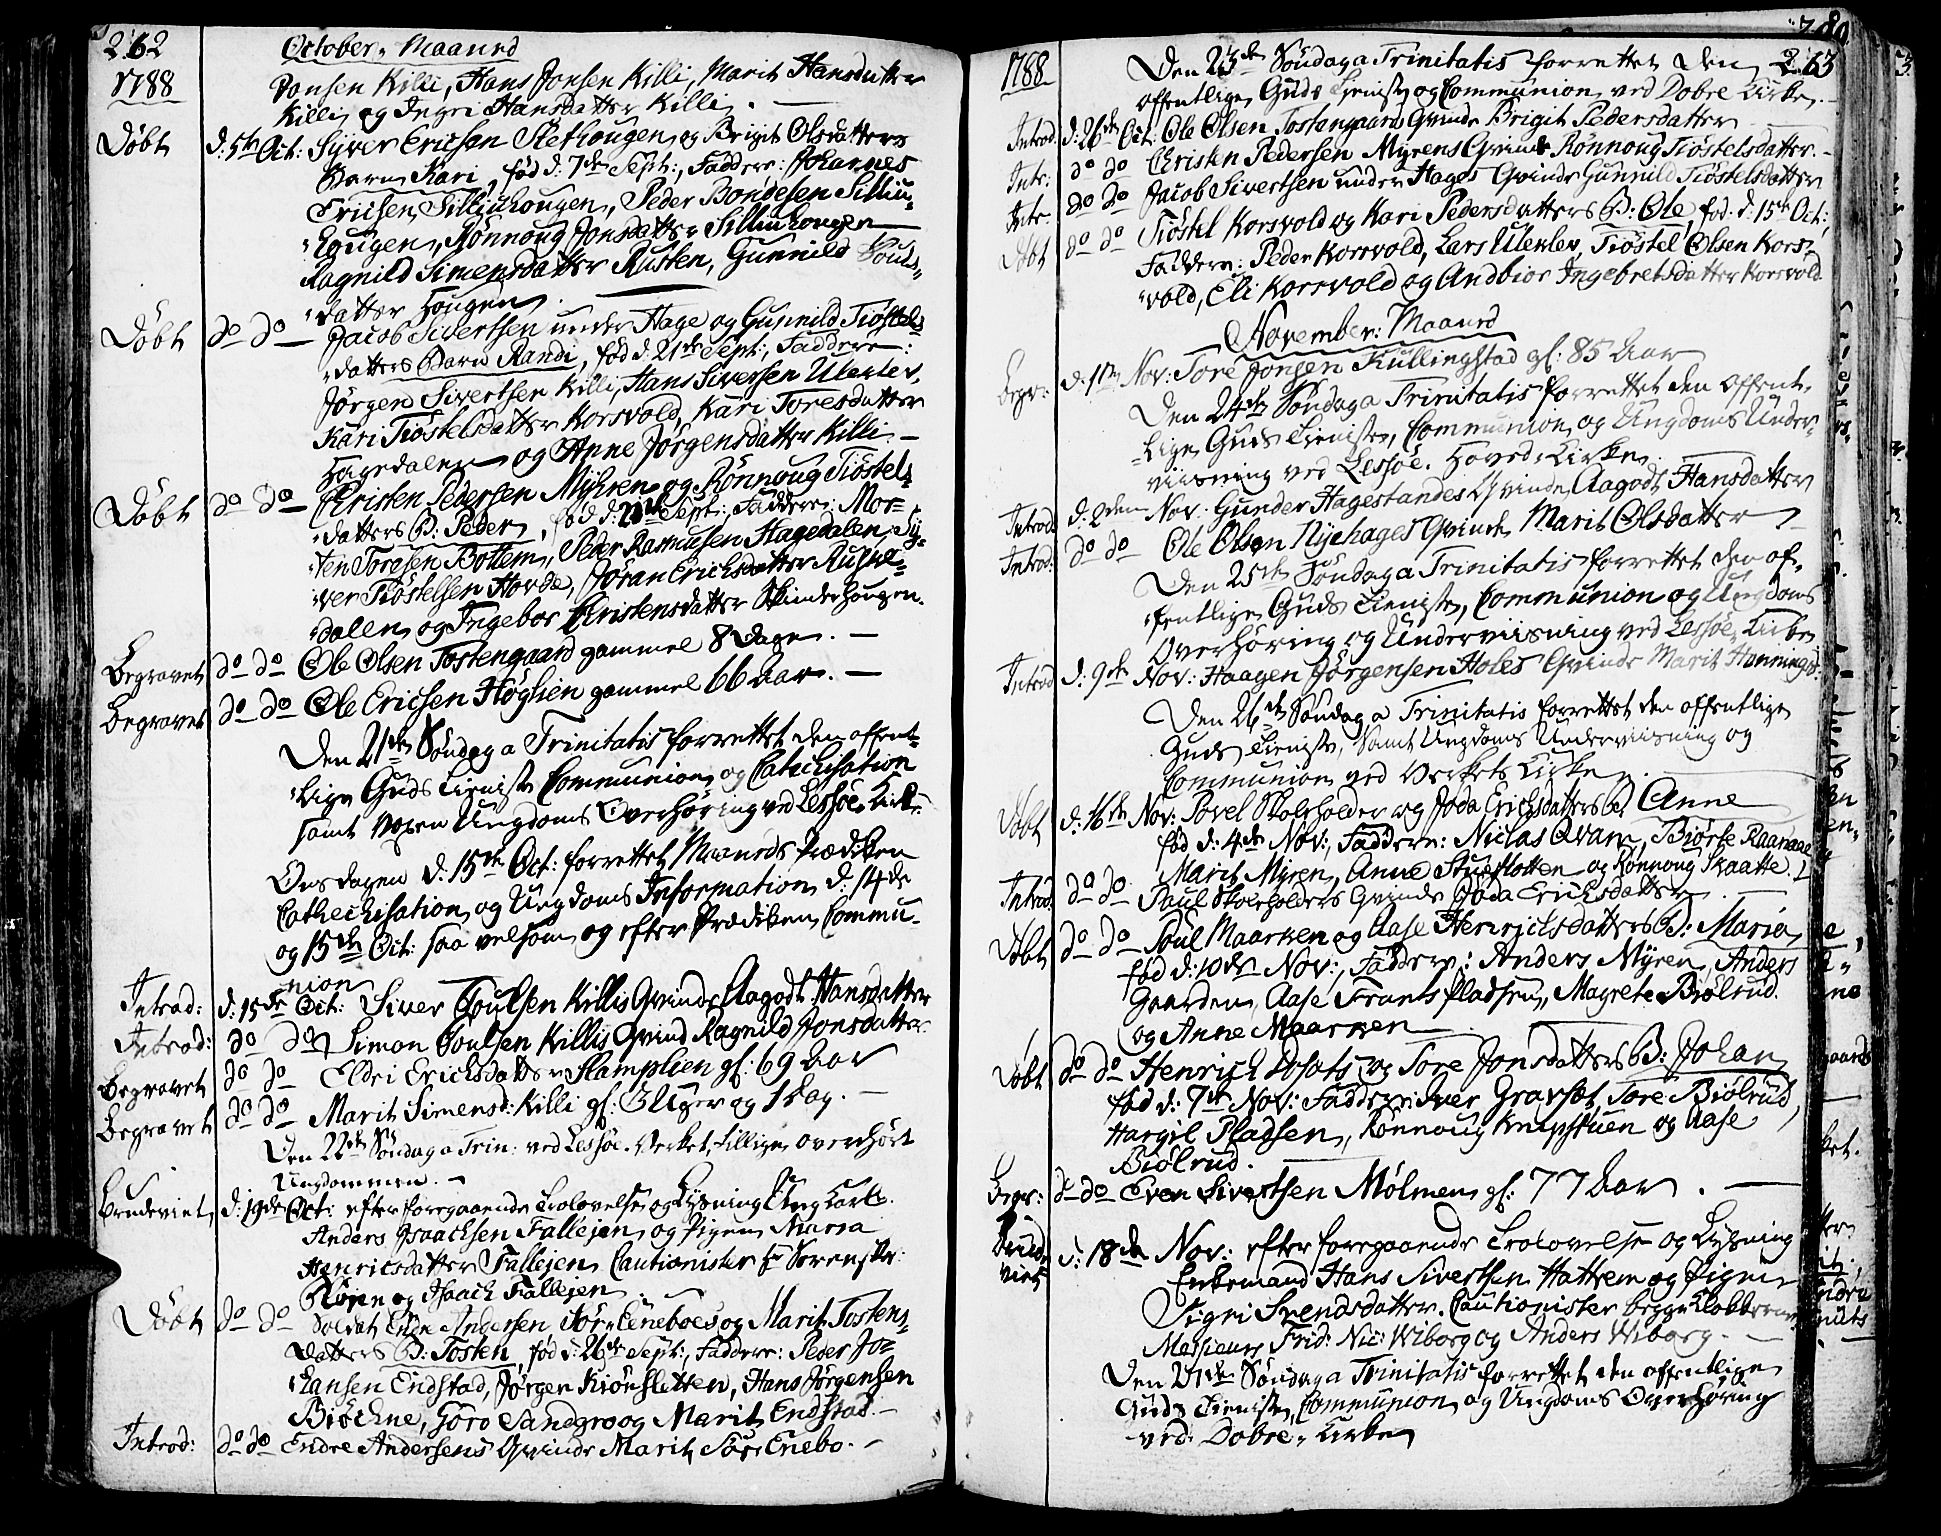 262
1788
October Maaned
Jonsen Killi, Hans Jonsen Killi, Marit Hansdatter
Killi og Ingri Hansdatter Killi.
Døbt d: 5te Oct: Syver Ericsen Slethougen og Brigit Olsdatters
Barn Kari, fød d: 7de Sept:, Faddere: Johannes
Ericsen Silliuhougen, Peder Bondesen Silliu-
Rønnoug Jonsdatter Silliuhougen
Ragnild Simensdatter Rusten, Gunnild
datter Hougen.
Døbt do do Jacob Sivertsen under Hage og Gunnild Tiøstels
datters Barn Randi, fød d: 21de Sept:, Faddere:
Jørgen Sivertsen Killi, Hans Siversen Uleklev,
Kari Tiøstelsdatter Korsvold, Kari Toresdatter
Hagedalen og Anne Jørgensdatter Killi.
Døbt do do Christen Pedersen Myhren og Rønnoug Tiøstels
datters B: Peder, fød d: Sept: Faddere: Mor-
ten Toresen Bottem, Peder Rasmusen Hagedalen, Sy-
ver Tiøstelsen Horde, Jøran Ericksdatter Ruske-
dalen og Ingebor Christensdatter Skinderhougen.
Begravet do do Ole Olsen Tostengaard gammel 8 Dage.
Begravet do do Ole Ericsen Høglien gammel 66 Aar.
Den 21de Søndag a Trinitatis forrettet den offent-
lige Guds Tieniste Communion og Catechisation
samt Ungdoms Overhøring ved Lessøe Kirke
Onsdagen d: 15de Oct: forrettet Maaneds Prædiken
Cathechisation og Ungdoms Information d: 14de
og 15de Oct: saavelsom og efter Prædiken Commu-
nion
Introd: d: 15de Oct: Siver Poulsen Killis Qvinde Aagodt Hansdatter
Introd: do do Simon Poulsen Killis Qvind Ragnild Jonsdatter
Begravet do do Eldri Ericksdatter Slamplien gl: 69 Aar
Begravet do do Marit Simensd: Killi gl: 3 Uger og 1 Dag.
Den 22de Søndag a Trin: ved Lessøe-Verket, tillige overhørt
Ungdommen.
Brudeviet d: 19de Oct: efter foregaaende Trolovelse og Lysning Ung Karl
Anders Isaachsen Fallejen og Pigen Maria
Henricsdatter Fallejen Cautionister
og Isaach Fallejen
Døbt do do Soldat Endre Andersen Sør-Eneboes og Marit Tostens-
datters B: Tosten, fød d: 26de Sept:, Faddere: Peder Jo-
hansen Endstad, Jørgen Kiønsletten, Hans Jørgensen
Biøckne, Goro Sandgro og Marit Endstad.
Introd: do do Endre Andersens Qvinde Marit Sør-Enebo.
1788
263
Den 23de Søndag a Trinitatis forrettet den
offentlige Guds Tieniste og Communion ved Dovre Kirke.
Introd: d: 26de Oct: Ole Olsen Tostengaards Qvinde Brigit Pedersdatter
Intr: do do Christen Pedersen Myrens Qvinde Rønnoug Tiøstelsdatter.
Intr: do do Jacob Sivertsen under Hages Qvinde Gunnild Tiøstelsdatter
Døbt do do Tiøstel Korsvold og Kari Pedersdatters B: Ole, fød: d: 15de Oct:
Faddere: Peder Korsvold, Lars Uleklev, Tiøstel Olsen Kors-
vold, Eli Korsvold og Andbior Ingebretsdatter Korsvold
November: Maaned
Begr: d: 1te Nov: Tore Jonsen Kullingstad gl: 85 Aar
Den 24de Søndag a Trinitatis forrettet den offent-
lige Guds Tieniste, Communion og Ungdoms Under-
viisning ved Lessøe Hoved-Kirke.
Introd: d: 2den Nov: Gunder Hagestandes Qvinde Aagodt Hansdatter
Introd: do do Ole Olsen Nyehages Qvinde Marit Olsdatter
Den 25de Søndag a Trinitatis forrettet den of-
fentlige Guds Tieniste, Communion og Ungdoms
Overhøring og Underviisning ved Lessøe Kirke
Introd d: 9de Nov: Haagen Jørgensen Holes Qvinde Marit Hemmingsd:
Den 26de Søndag a Trinitatis forrettet den offentlige
Guds Tieniste, samt Ungdoms Underviisning og
Communion ved Verkets Kirke.
Døbt d: 16de Nov: Povel Skoleholder og Joda Ericksdatters B: Anne
fød d: 4de Nov:, Faddere: Niclas Qvam, Biørte Raanaae
Marit Myren, Anne Stueflotten og Rønnoug Skaatte.
Introd do do Paul Skoleholders Qvinde Joda Ericksdatter
Døbt do do Poul Maarken og Aase Henrichsdatters B: Maria,
fød d: 10de Nov:, Faddere: Anders Myren, Anders
Gaarden, Aase Frants Pladsen, Magrete Biølrud
og Anne Maarken
Døbt do do Henrich og Tore Jonsdatters B: Johan
fød d: 7de Nov: Faddere: Iver Gravset, Tore Biølrud,
Hargil Pladsen, Rønnoug Knipstuen og Aase
Biølrud.
Begr: do do Even Sivertsen Mølmen gl: 77 Aar.
Brud-
viet d: 18de Nov: efter foregaaende Trolovelse og Lysning
Enkemand Hans Sivertsen Hattrem og Pigen
Sigri Svendsdatter. Cautionister begge Klokkerne
Messieurs Frid: Nic: Wiborg og Anders Wiborg.
Den 27de Søndag a Trinitatis forrettet den offentlige
Guds Tieniste, Communion og Ungdoms Overhøring
ved Dobre-Kirke